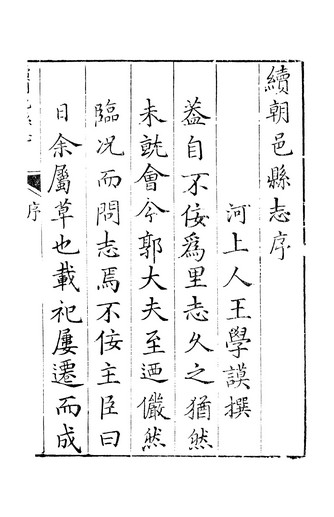 續朝邑縣志序
河上人王學謨撰
葢自不佞爲里志久之猶然
未兟會今郭大夫至迺儼然
臨况而問志焉不佞主臣曰
日余屬草也載祀屢遷而成
序